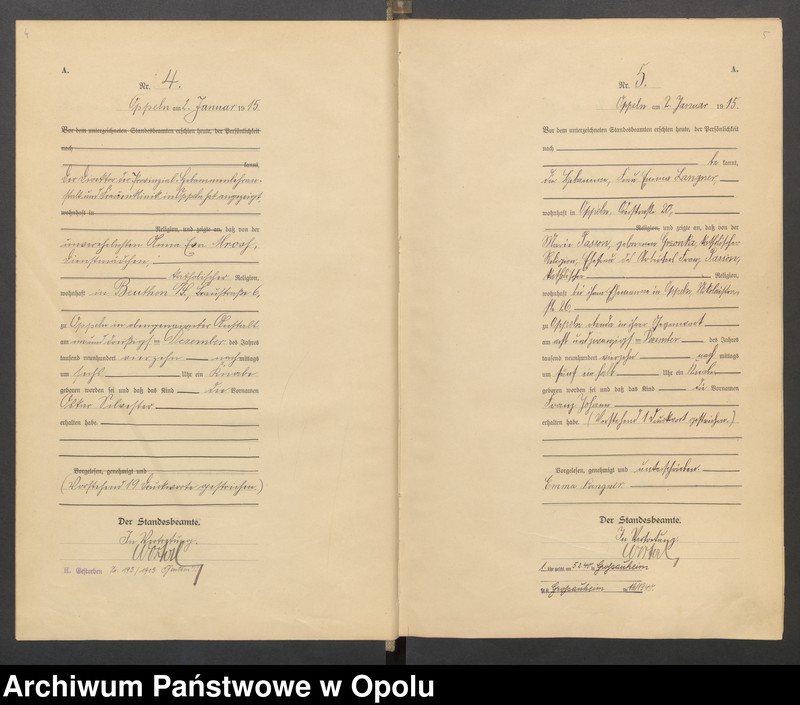 4
A.
Nr. 4.
Oppeln am 2. Januar 1915.
Vor dem unterzeichneten Standesbeamten erschien heute, der Persönlichkeit
nach
kannt,
Der Direktor der Provinzial-Hebammenlehran-
stalt und Frauenklinik in Oppeln hat angezeigt
wohnhaft in
Religion, und zeigte an, daß von der
unverehelichten Anna Eva
Dienstmädchen,
katholischer Religion,
wohnhaft in Beuthen O/S, 6,
zu Oppeln in der Anstalt
am ein und dreißigsten Dezember des Jahres
tausend neunhundert vierzehn nachmittags
um sechs Uhr ein Knabe
geboren worden sei und daß das Kind die Vornamen
Oskar Silvester
erhalten habe.
Vorgelesen, genehmigt und
(Vorstehend 19 Druckworte gestrichen.)
Der Standesbeamte.
In Vertretung.
Gestorben
5
A.
Nr. 5.
Oppeln am 2. Januar 1915.
Vor dem unterzeichneten Standesbeamten erschien heute, der Persönlichkeit
nach
be kannt,
die Hebamme, Frau Emma Langner,
wohnhaft in Oppeln, 20,
Religion, und zeigte an, daß von der
Marie geborenen katholischer
Religion, Ehefrau des Arbeiters Franz
katholischer Religion,
wohnhaft bei ihrem Ehemanne in Oppeln, Nikolaistra-
ße 26.
zu Oppeln in ihrer Gegenwart
am acht und zwanzigsten Dezember des Jahres
tausend neunhundert vierzehn nachmittags
um fünf ein halb Uhr ein Knabe
geboren worden sei und daß das Kind die Vornamen
Franz Johann
erhalten habe (Vorstehend 1 Druckwort gestrichen.)
Vorgelesen, genehmigt und unterschrieben
Emma Langner
Der Standesbeamte.
In Vertretung.
Großauheim
Großauheim
Archiwum Państwowe w Opolu